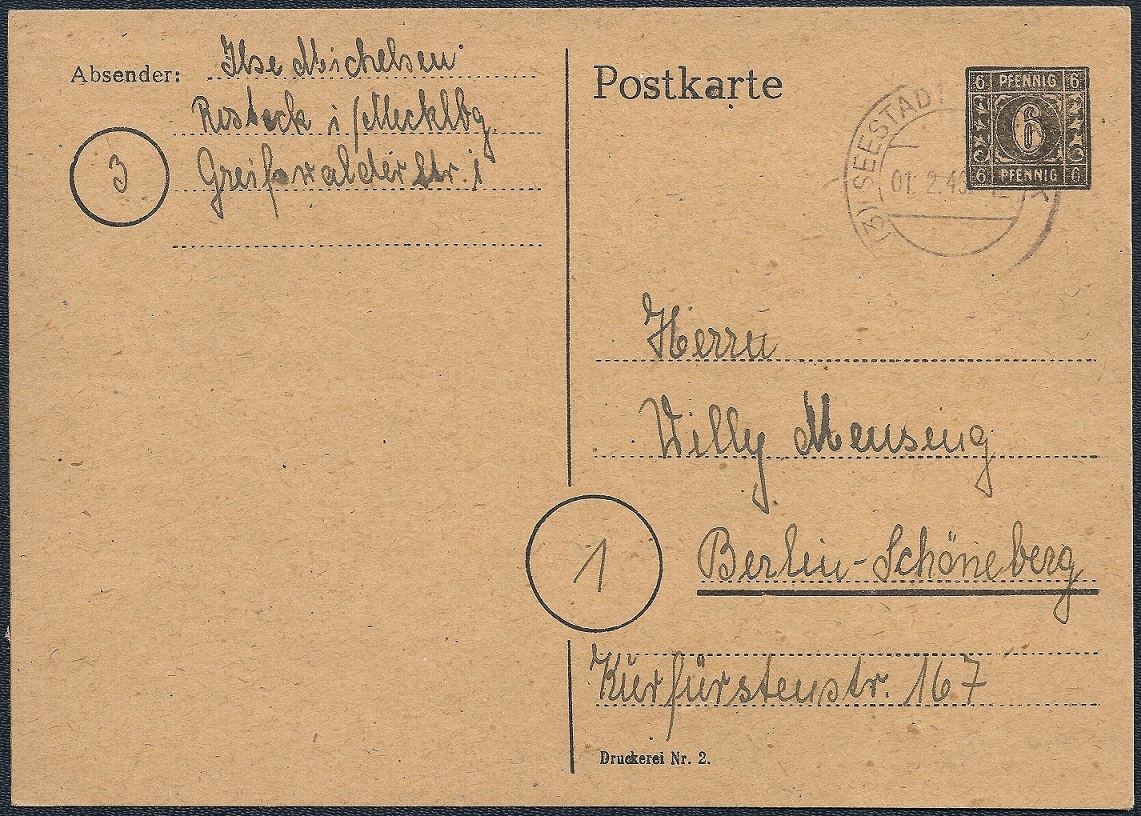 Absender: Ilse Michelsen
Rosbeck i/Mecklbg.
Greifswalder Str. 1
3
Postkarte
6 PFENNIG 6
6
6 PFENNIG 6
(3) SEESTADT
01. 2.46
Herrn
Willy Mensing
1
Berlin-Schöneberg
Kurfürstenstr. 167
Druckerei Nr. 2.